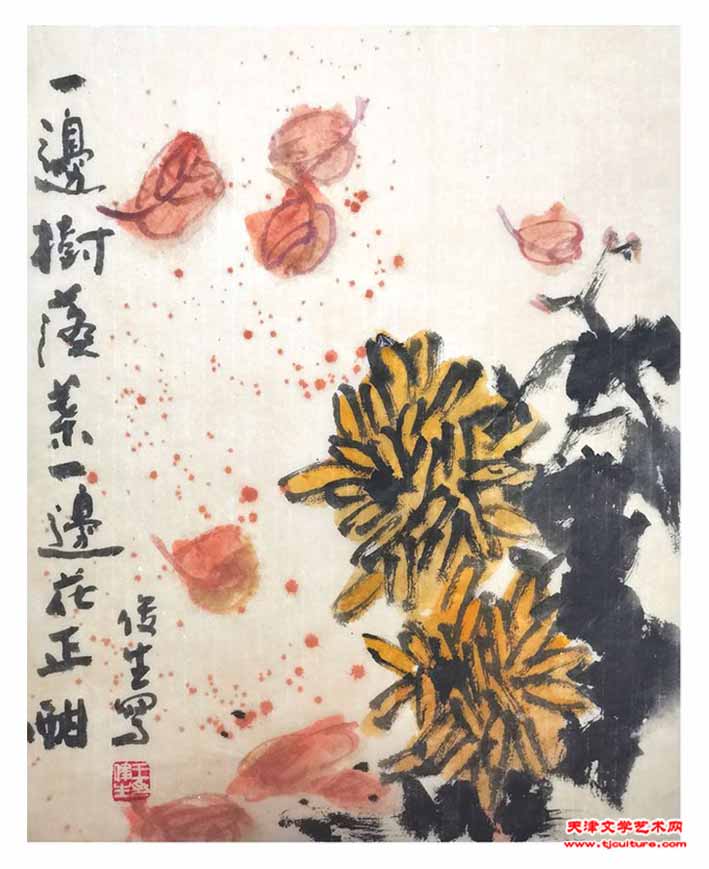 一邊樹落葉一邊花正酣
俊生寫
天津文学艺术网
www.tjculture.com